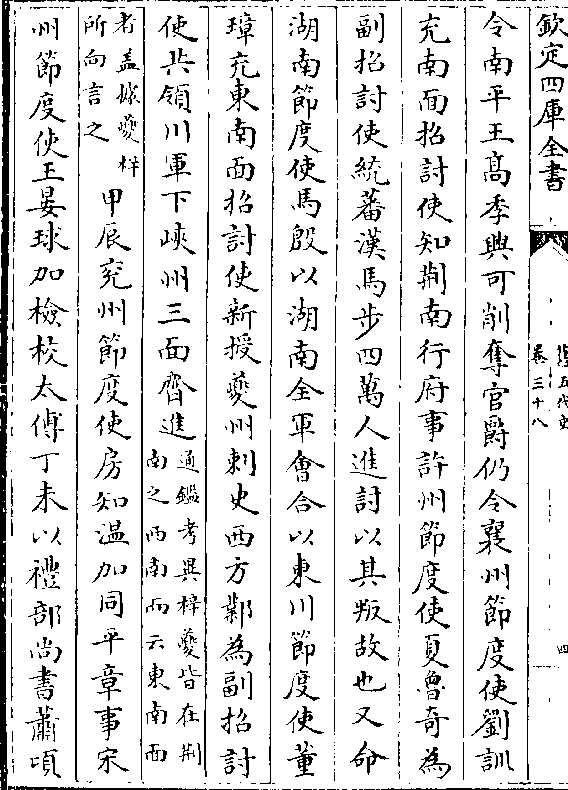 欽定四庫全書
舊五代史
卷三十八
四
令南平王高季興可削奪官爵仍令襄州節度使劉訓
充南面招討使知荆南行府事許州節度使夏魯奇為
副招討使統蕃漢馬步四萬人進討以其叛故也又命
湖南節度使馬殷以湖南全軍會合以東川節度使董
璋充東南面招討使新授夔州刺史西方鄴為副招討
使共領川軍下峽州三面齊進
通鑑考異梓夔皆在荆
南之西南而云東南面
者盖據夔梓
所向言之
甲辰兖州節度使房知温加同平章事宋
州節度使王晏球加檢校太傅丁未以禮部尚書蕭頃